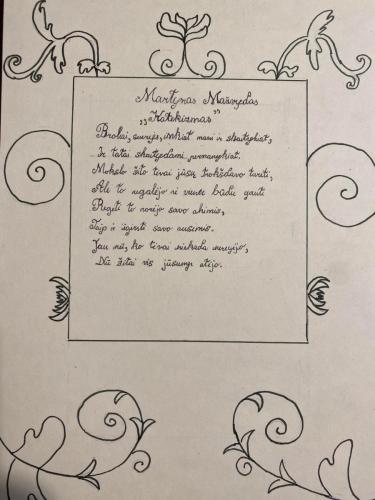 Martynas Mažvydas
„Katekizmas"
Broliai, seserys, imkiat mani ir skaitykiat,
Ir tatai skaitydami, permanykiat.
Mokslo šito tėvai jūsų trokšdavo turėti,
Ale to negalėjo nė vienu būdu gauti.
Regėti to norėjo savo akimis,
Taip ir išgirsti savo ausimis.
Jau nū, ko tėvai niekada neregėjo,
Nū šitai vis jūsump atėjo.